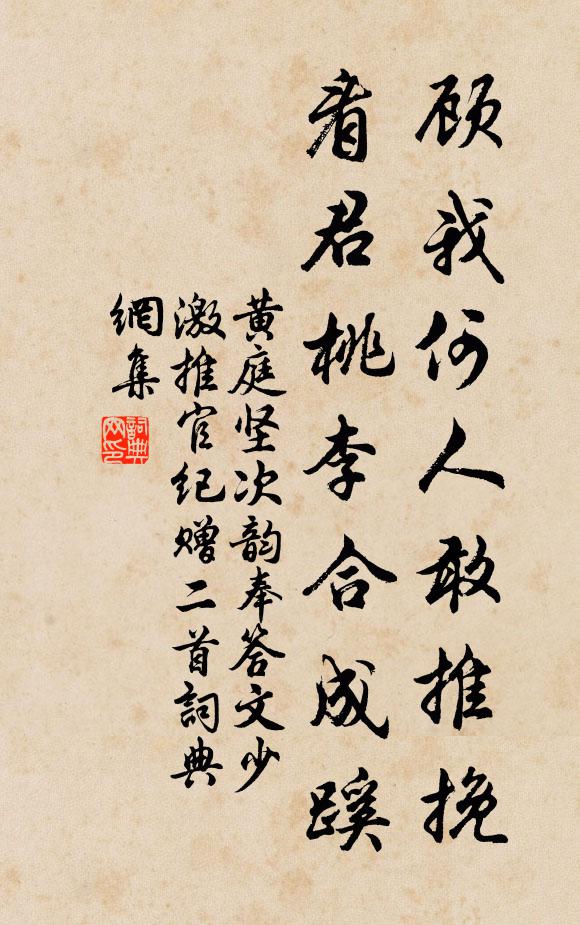 顾我何人敢推挽
看君桃李合成蹊
黄庭坚次韵奉答文少
激推官纪赠二首詞典
網集
詞典
网印